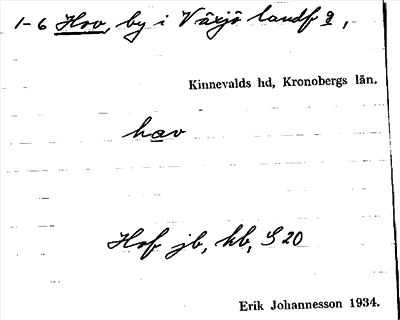 1-6 Hov, by i Växjö landf g,
Kinnevalds hd, Kronobergs län.
hav
Hof jb, kb, S 20
Erik Johannesson 1934.